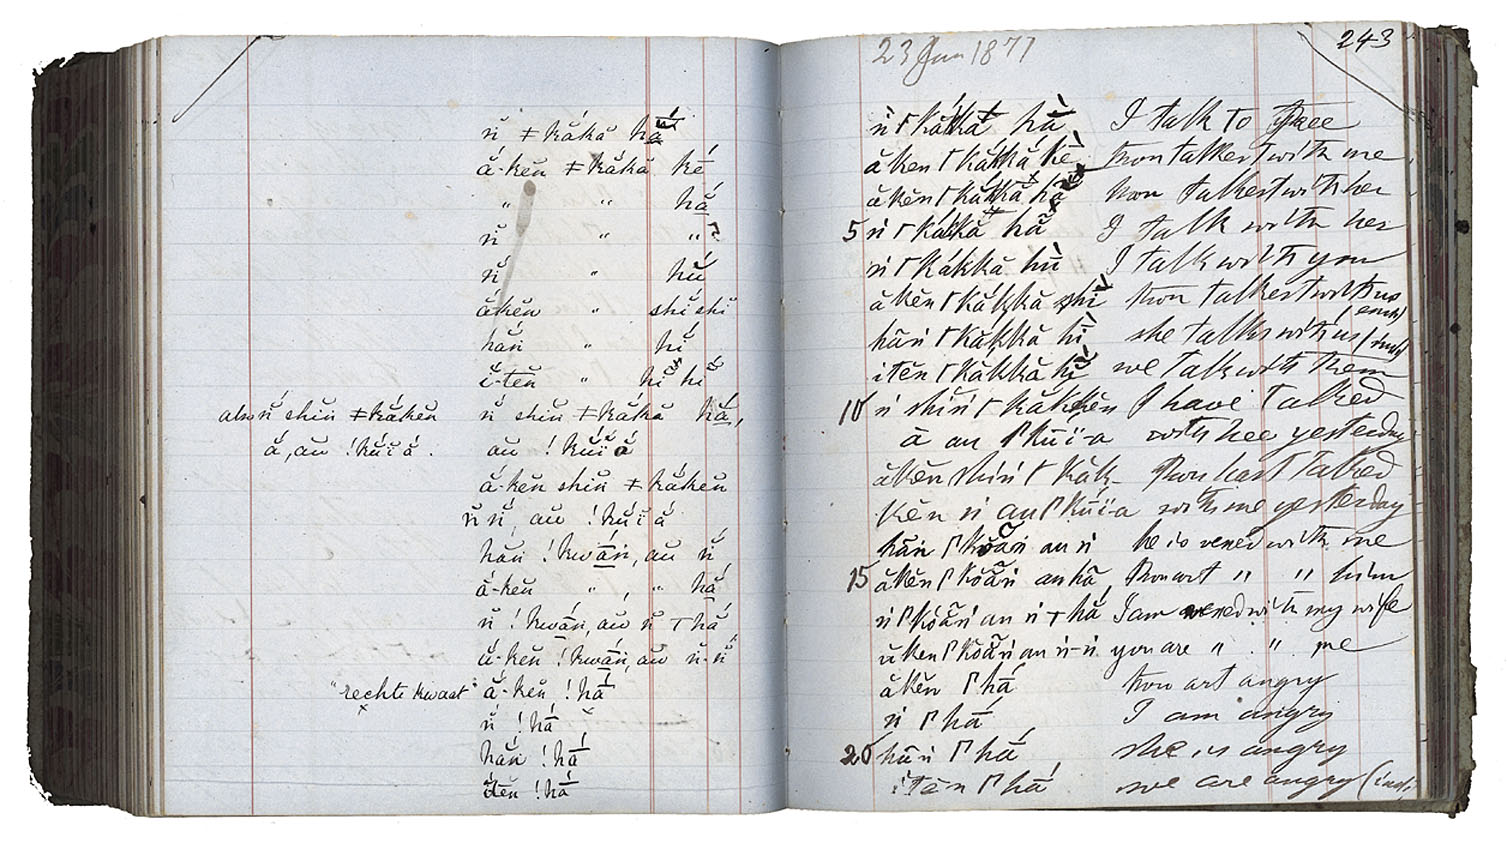 n̆ ǂkákă hā́
ắ-kĕn ǂkákă kē
„ „ hā́
n̆ „ „
n̆ „ hŭ
ăkĕn „ shĭ shĭ
hăn̆ „ hĭ
ĭ-tĕn „ hĭ hĭ
also n̆ shin ǂkákĕn n̆ shin ǂkákă hā,
ắ, au !kúĭ ắ. au !kúĭ ắ
ắ-kĕn shin ǂkákĕn
n̆ n̆, au !kúĭ ắ
hăn̆ !kwā́n, au n̆
ắ-kĕn „ , „ hắ
n̆ !kwā́n, au n̆ ⊤ hắ
ŭ-kĕn !kwā́n, au n̆-n̆
"rechte kwaat" ắ-kĕn !hā́
n̆ !hā́
hăn̆ !hā́
ĭtĕn !hā́
23 Jun 1877 243
n̆ ꓩkákkă hā I talk to thee
ăken ꓩkákkă kē thou talkest with me
ăkĕn ꓩkákkă hă thou talkest with her
5 n̆ ꓩkákkă hă I talk with her
n̆ ꓩkákkă hŭ I talk with you
ăkĕn ꓩkákkă shĭ thou talkest with us (excl)
hăn̆ ꓩkákkă hĭ she talks with us (incl)
ĭtĕn ꓩkákkă hĭ we talk with them
10 n̆ shin̆ ꓩkákkĕn I have talked
ă au ꓩkŭï-a with thee yesterday
ăkĕn shin̆ ꓩkák- Thou hast talked
kĕn n̆ au ꓩkŭï-a with me yesterday
hăn̆ ꓩkŏăn̆ au n̆ he is vexed with me
15 ăkĕn ꓩkŏăn̆ au hă Thou art „ „ him
n̆ ꓩkŏăn̆ au n̆ ⊤ hắ I am vexed with my wife
ŭken ꓩkŏăn̆ au n̆-n̆ you are „ „ me
ăkĕn ꓩhā́ thou art angry
n̆ ꓩhā́ I am angry
20 hăn̆ ꓩhā́ she is angry
ĭtĕn ꓩhā́ we are angry (incl.